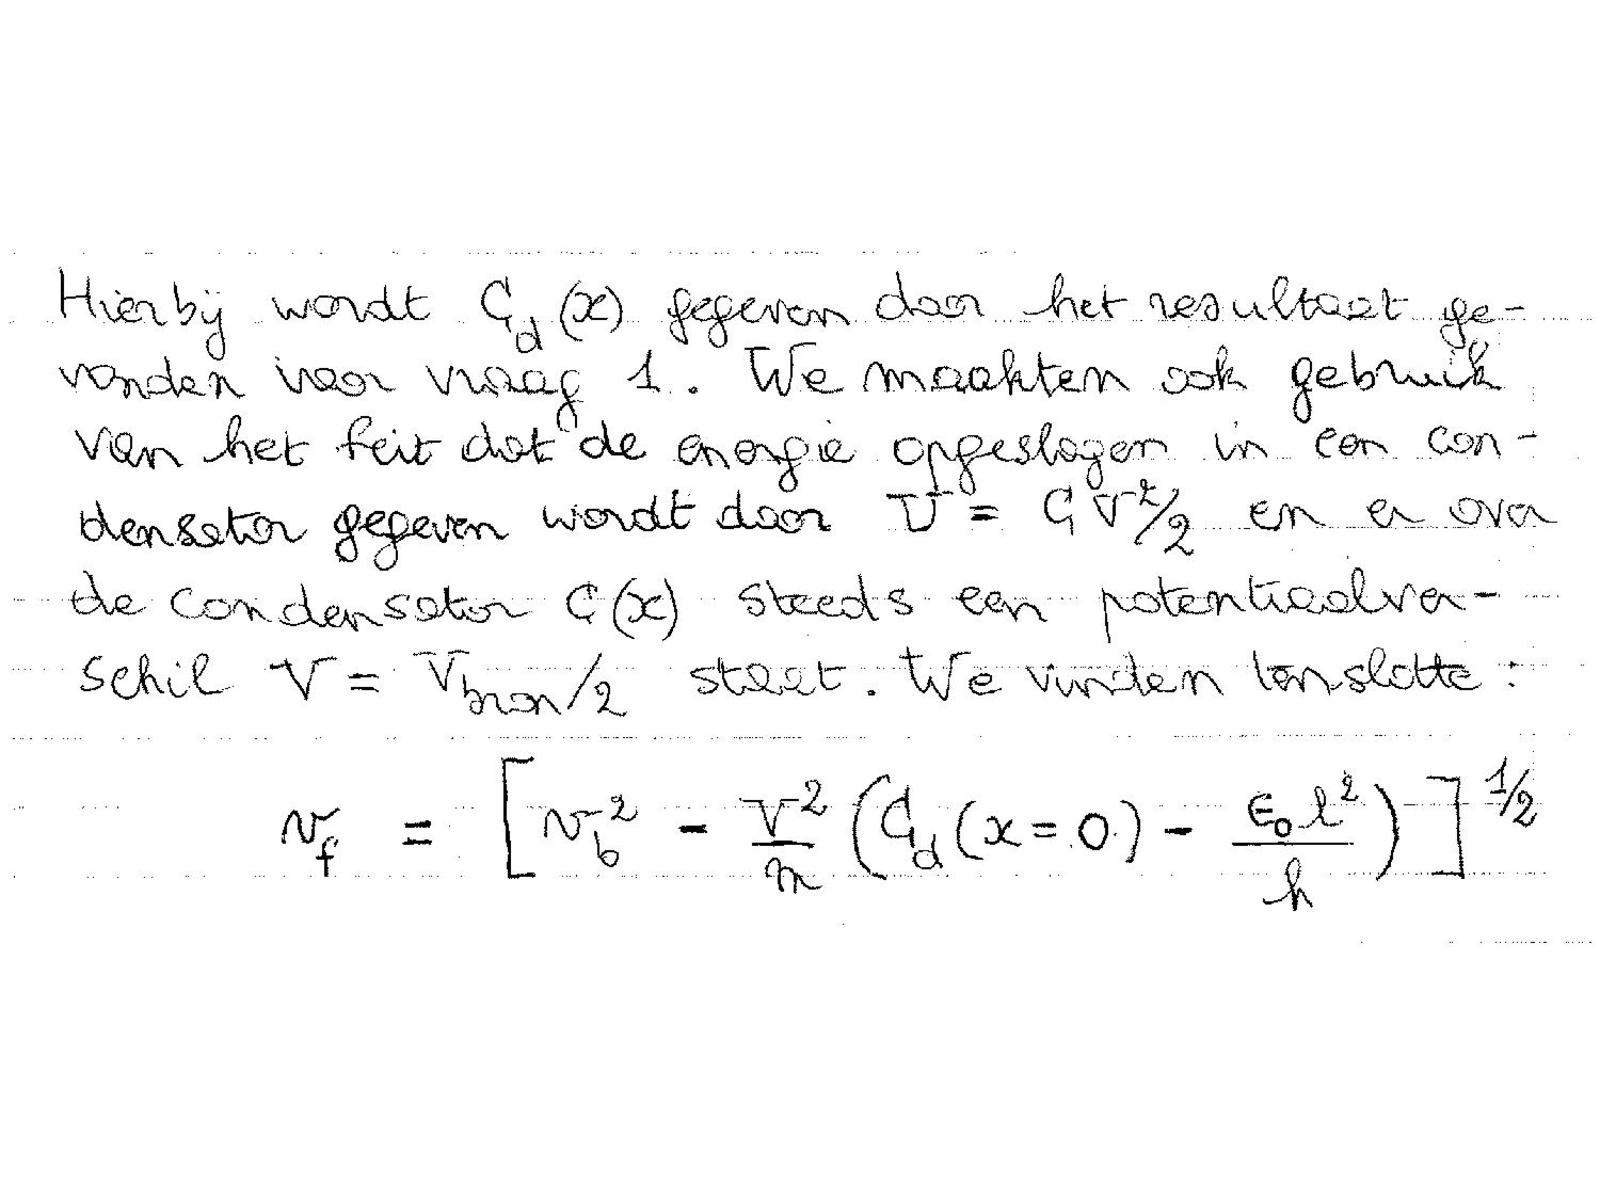 Hierbij wordt C_d(x) gegeven door het resultaat ge-
vonden voor vraag 1. We maakten ook gebruik
van het feit dat de energie opgeslagen in een con-
densator gegeven wordt door U = CV²/2 en er over
de condensator C(x) steeds een potentiaalver-
schil V = V_bron/2 staat. We vinden tenslotte :
v_f = [v_b² - V²/m (C_d(x=0) - ε₀l²/h)]^1/2